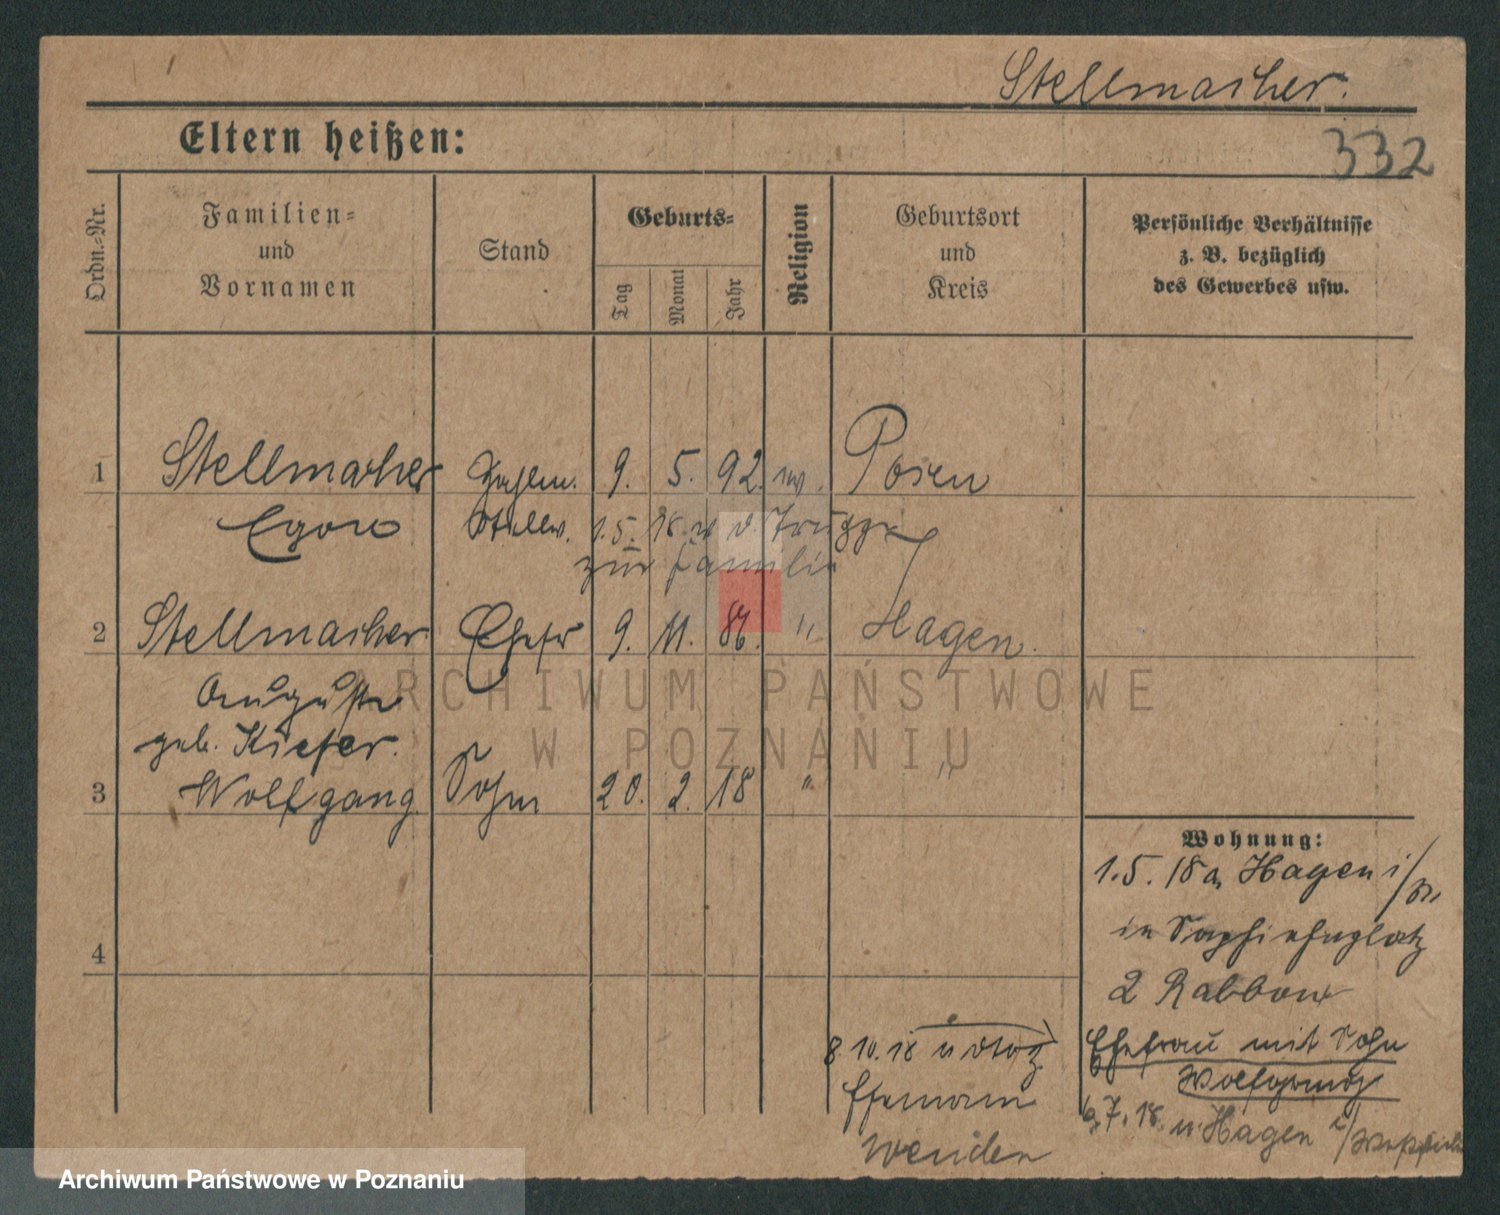 Stellmacher.
Eltern heißen:
332
Ordn.-Nr.
Familien-
und
Vornamen
Stand
Geburts-
Tag
Monat
Jahr
Religion
Geburtsort
und
Kreis
Persönliche Verhältnisse
z. B. bezüglich
des Gewerbes usw.
1 Stellmacher 9. 5. 92. Posen
Egon 1.5. 18. v. d. Truppe
zur Familie
2 Stellmacher Ehefr 9. 11. 86. " Hagen.
Auguste
geb. Kiefer.
3 Wolfgang Sohn 20. 2. 18 " "
4
Wohnung:
1.5.18 a Hagen i/W.
in Sapiehaplatz
2 Rabbow
Ehefrau mit Sohn
Wolfgang
6.7.18. n. Hagen i/Westfalen
8.10.18
Ehemann
wenden
ARCHIWUM PAŃSTWOWE
W POZNANIU
Archiwum Państwowe w Poznaniu